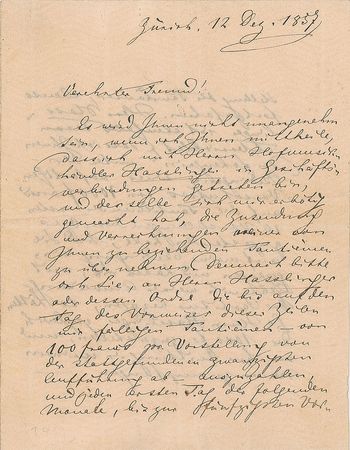 Zürich, 12 Dez. 1857
Verehrter Freund!
Es wird Ihnen nicht unangenehm
sein, wenn ich Ihnen mittheile,
dass ich mit Herrn Hofmusik-
händler Hasslinger in Geschäfts-
verbindungen getreten bin,
und derselbe sich mir erbötig
gemacht hat, die Zusendung
und Verrechnungen meiner von
Ihnen zu beziehenden Tantièmen
zu übernehmen. Demnach bitte
ich Sie, an Herrn Hasslinger
oder dessen Ordre die bis auf den
Tag des Vorweises dieser Zeilen
mir fälligen Tantièmen – von
100 francs pr Vorstellung von
der stattgefundenen zwanzigsten
Aufführung ab – auszuzahlen,
und jeden ersten Tag der folgenden
Monate, bis zur fünfzigsten Vor-